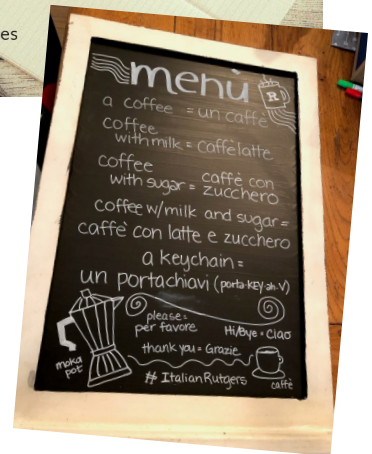 es
menù
R
a coffee = un caffè
coffee
with milk = caffèlatte
coffee
with sugar = caffè con
zucchero
coffee w/milk and sugar =
caffè con latte e zucchero
a keychain =
un portachiavi (porta-KEY-ah-V)
please =
per favore
Hi/Bye = Ciao
thank you = Grazie
moka
pot
# ItalianRutgers
caffè